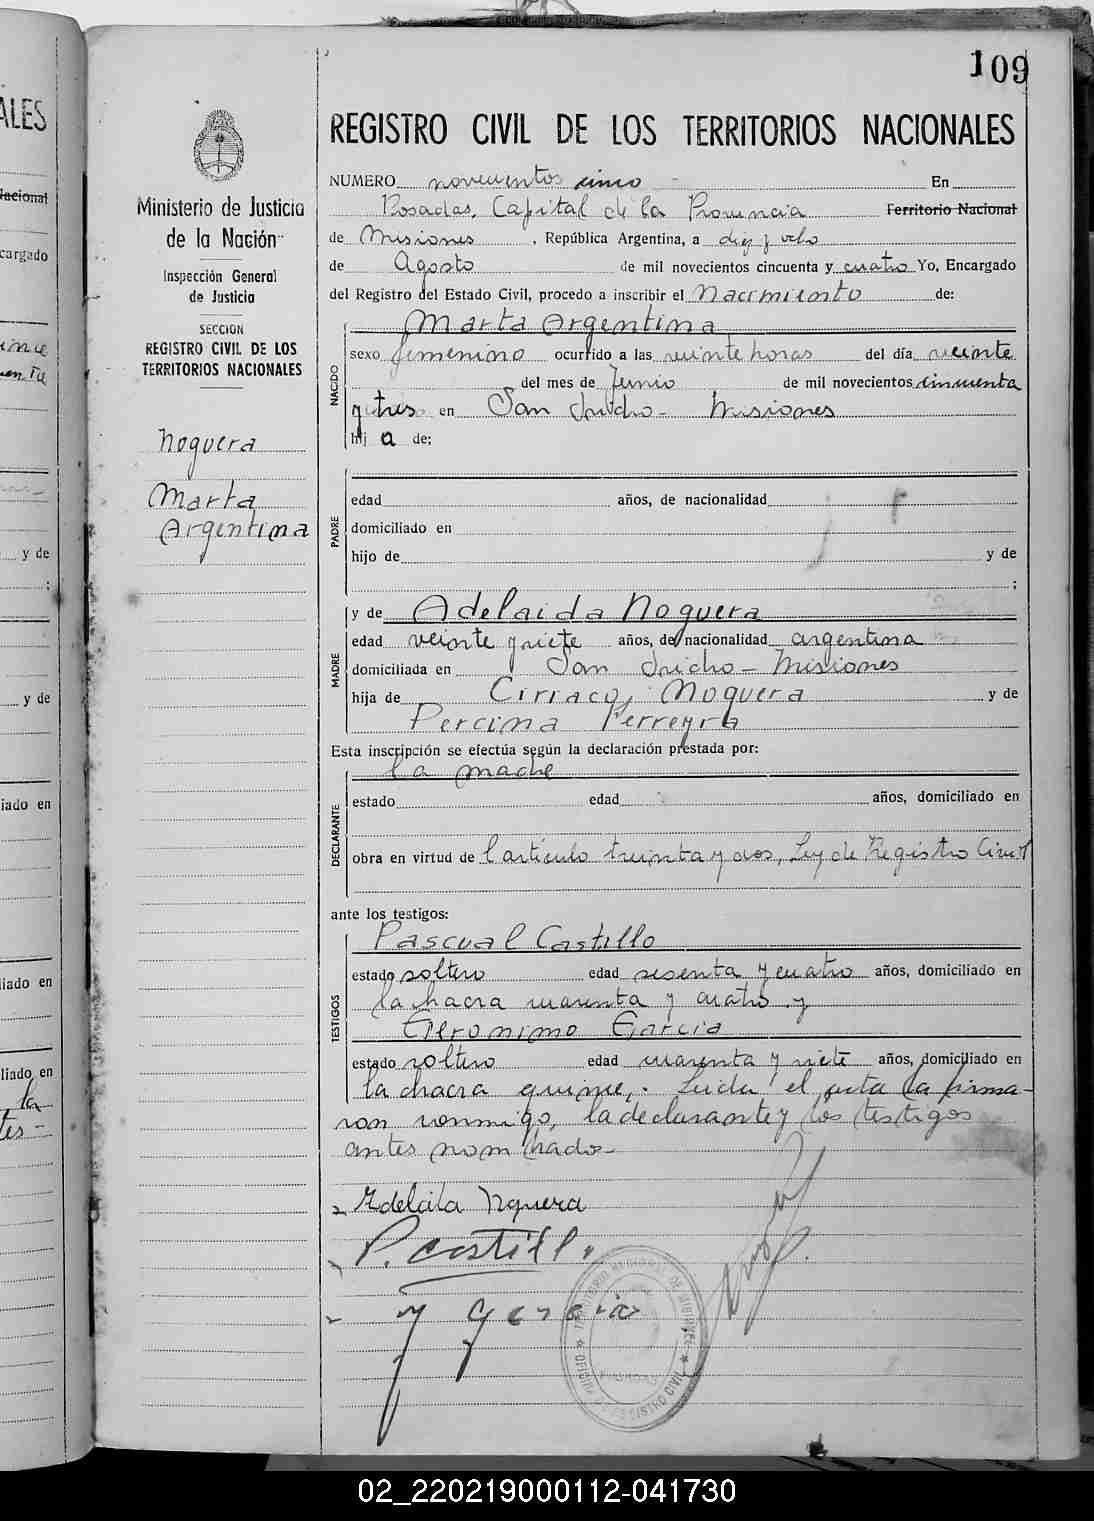 109
REGISTRO CIVIL DE LOS TERRITORIOS NACIONALES
NUMERO novecientos cinco En
Posadas, Capital de la Provincia Territorio Nacional
de Misiones , República Argentina, a diez y ocho
de Agosto de mil novecientos cincuenta y cuatro Yo, Encargado
del Registro del Estado Civil, procedo a inscribir el Nacimiento de:
Marta Argentina
NACIDO
sexo femenino ocurrido a las veinte horas del día veinte
del mes de Junio de mil novecientos cincuenta
y tres en San Isidro - Misiones
hij a de:
PADRE
edad años, de nacionalidad
domiciliado en
hijo de y de
;
MADRE
y de Adelaida Noguera
edad veinte y siete años, de nacionalidad argentina
domiciliada en San Isidro - Misiones
hija de Ciriaco Noguera y de
Percina Ferreyra
Esta inscripción se efectúa según la declaración prestada por:
la madre
DECLARANTE
estado edad años, domiciliado en
obra en virtud de l artículo treinta y dos, Ley de Registro Civil
ante los testigos:
TESTIGOS
Pascual Castillo
estado soltero edad sesenta y cuatro años, domiciliado en
la chacra cuarenta y cuatro y
Geronimo Garcia
estado soltero edad cuarenta y siete años, domiciliado en
la chacra quince. Leida el acta la firma-
ron conmigo, la declarante y los testigos
antes nombrados-
Adelaila Nguera
P. Castillo
J Garcia
TERRITORIO NACIONAL DE MISIONES
OFICINA DE REGISTRO CIVIL
POSADAS
Ministerio de Justicia
de la Nación
Inspección General
de Justicia
SECCION
REGISTRO CIVIL DE LOS
TERRITORIOS NACIONALES
Noguera
Marta
Argentina
ALES
Nacional
cargado
y de
;
y de
iado en
liado en
liado en
la
02_220219000112-041730